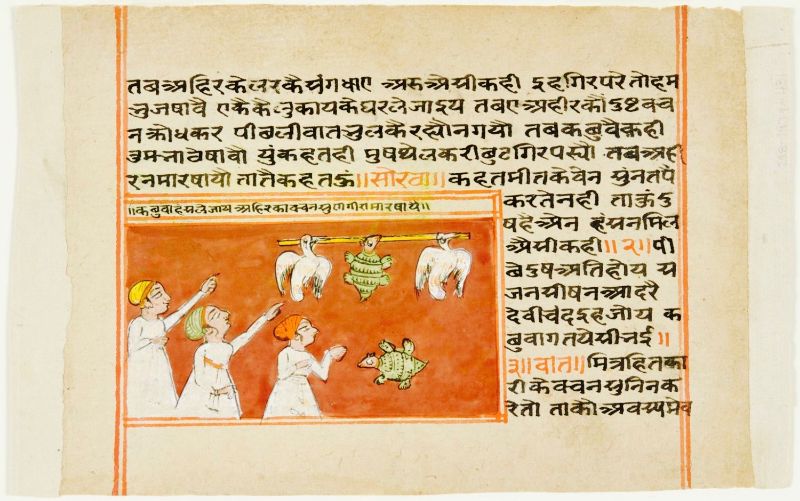 तब अहिर के लरकै संग धाए अरु अैसी कही इह गिर परे तो हम
भुज षावै एकै के लुकाय कै घर ले जाइय तब ए अहीर कौ दुष्ट वच
न क्रोध कर पीछली वात भुल कै रह्यौ न गयौ तब कछुवै कही
तुम षावौ युं कहत ही मुष थे लकरी छुट गिर पस्यौ तब अही
रन मार षायो तातै कहत ऊं ॥सोरठा॥ कहत मीत के वेन सुनत पे
॥कछुवा हंस ले जाय अहिर का वचन सुण गीरा मार षाये॥
करते नही ताऊं दु
ष है अैन हंसन मिल
अैसी कही॥२॥ पी
छे दुष अति होय य
जन सीष न आदरै
देवी इह जोय क
छुवा गत येसी नई॥
३॥वात॥ मित्र हितका
री के वचन सुनि न क
रे तो ताकौ अवस्यमेव